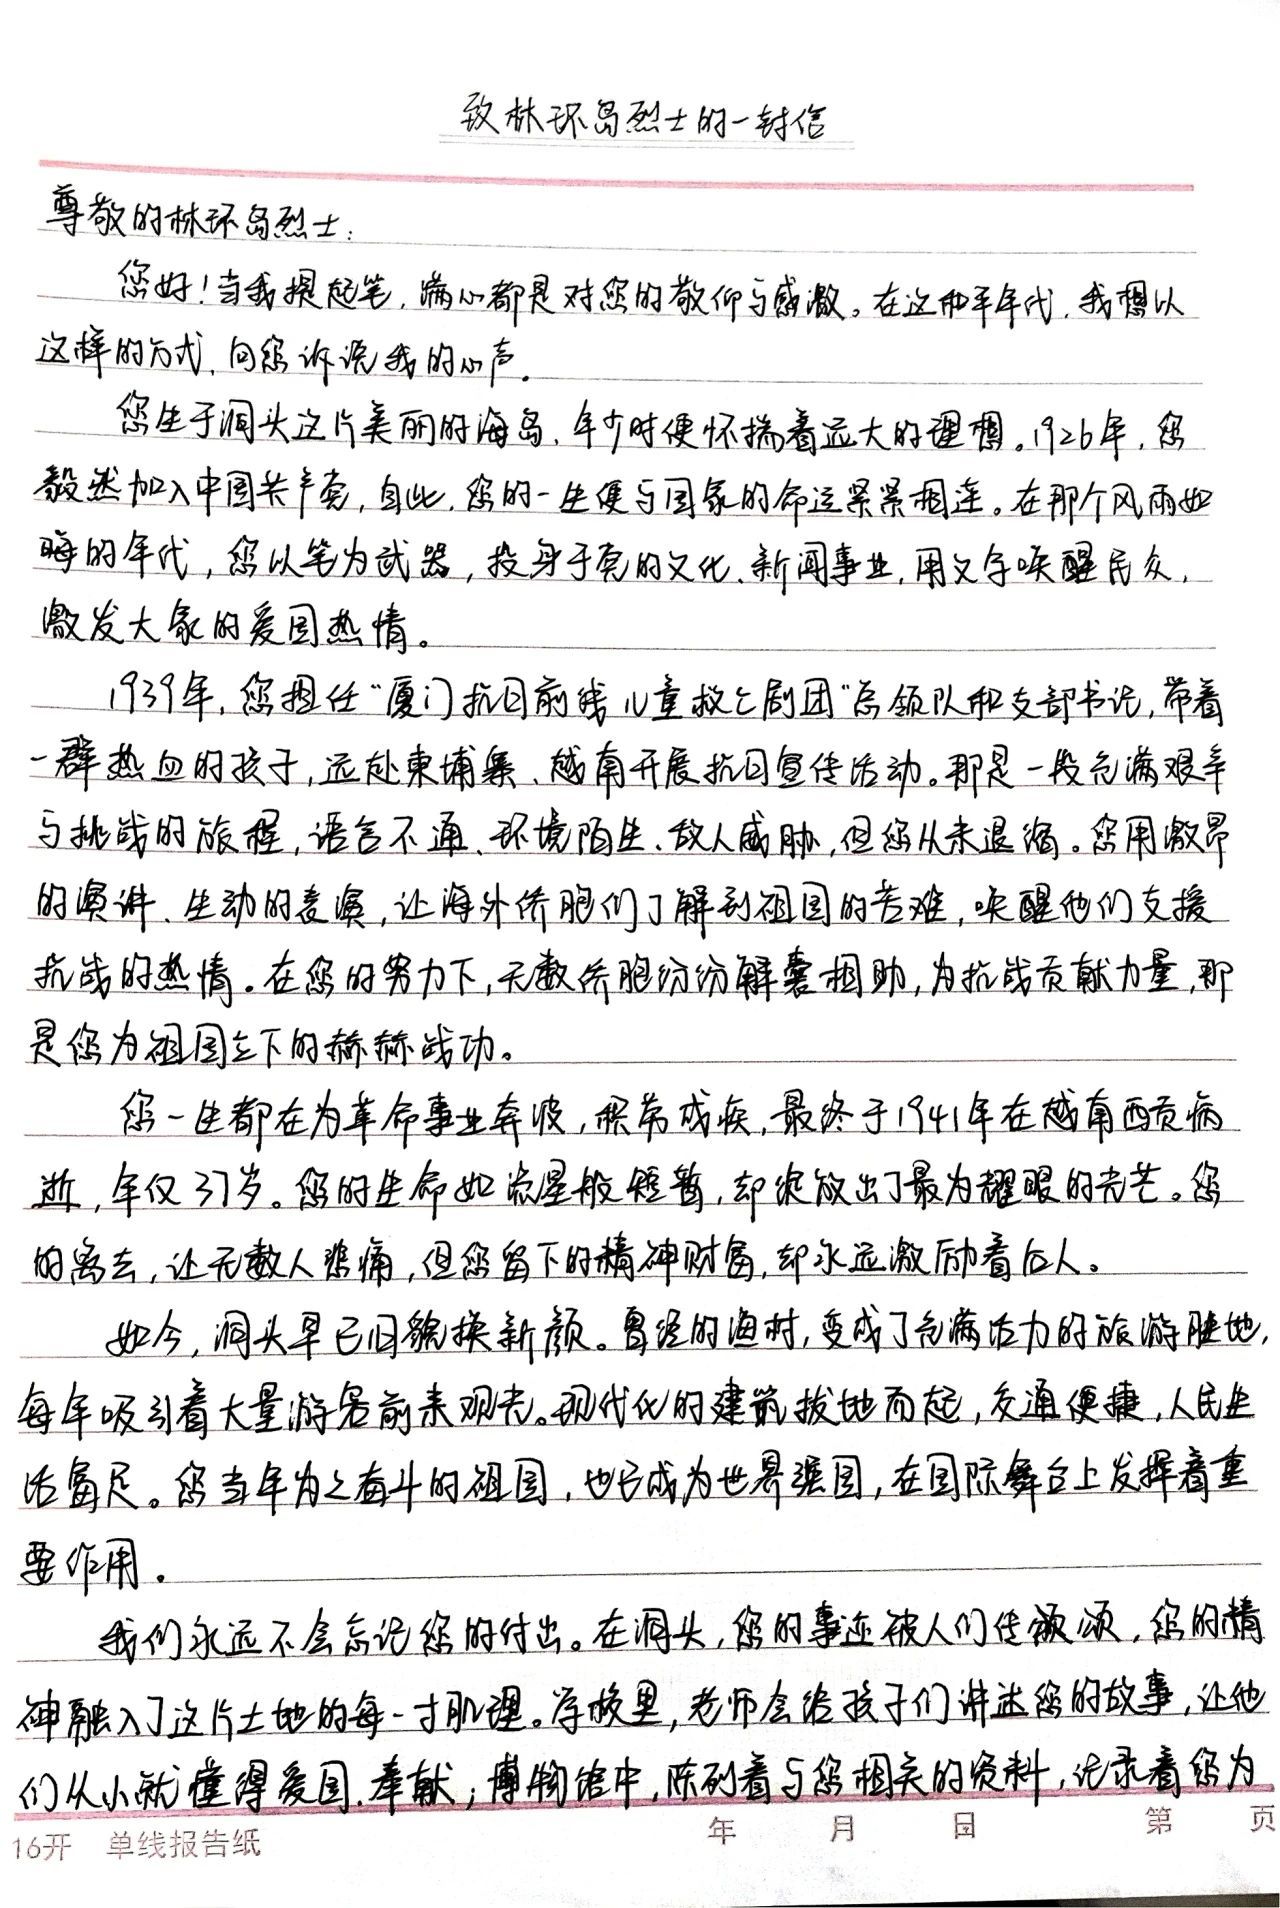 致林环岛烈士的一封信
尊敬的林环岛烈士：
您好！当我提起笔，满心都是对您的敬仰与感激。在这和平年代，我想以
这样的方式，向您诉说我的心声。
您生于洞头这片美丽的海岛，年少时便怀揣着远大的理想。1926年，您
毅然加入中国共产党，自此，您的一生便与国家的命运紧紧相连。在那个风雨如
晦的年代，您以笔为武器，投身于党的文化、新闻事业，用文字唤醒民众，
激发大家的爱国热情。
1939年，您担任“厦门抗日前线儿童救亡剧团”总领队和支部书记，带着
一群热血的孩子，远赴柬埔寨、越南开展抗日宣传活动。那是一段充满艰辛
与挑战的旅程，语言不通、环境陌生、敌人威胁，但您从未退缩。您用激昂
的演讲、生动的表演，让海外侨胞们了解到祖国的苦难，唤醒他们支援
抗战的热情。在您的努力下，无数侨胞纷纷解囊相助，为抗战贡献力量，那
是您为祖国立下的赫赫战功。
您一生都在为革命事业奔波，积劳成疾，最终于1941年在越南西贡病
逝，年仅37岁。您的生命如流星般短暂，却绽放出了最为耀眼的光芒。您
的离去，让无数人悲痛，但您留下的精神财富，却永远激励着后人。
如今，洞头早已旧貌换新颜。曾经的渔村，变成了充满活力的旅游胜地，
每年吸引着大量游客前来观光。现代化的建筑拔地而起，交通便捷，人民生
活富足。您当年为之奋斗的祖国，也已成为世界强国，在国际舞台上发挥着重
要作用。
我们永远不会忘记您的付出。在洞头，您的事迹被人们传颂，您的精
神融入了这片土地的每一寸肌理。学校里，老师会给孩子们讲述您的故事，让他
们从小就懂得爱国、奉献；博物馆中，陈列着与您相关的资料，记录着您为
16开 单线报告纸 年 月 日 第 页